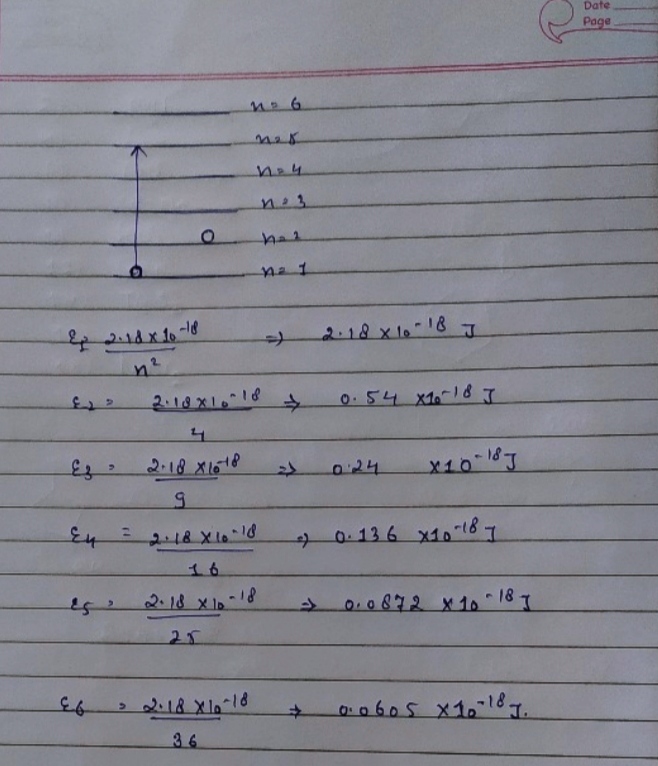 Date
Page
n = 6
n = 5
n = 4
n = 3
n = 2
n = 1
E₁ = 2.18 x 10⁻¹⁸ / n² => 2.18 x 10⁻¹⁸ J
E₂ = 2.18 x 10⁻¹⁸ / 4 => 0.54 x 10⁻¹⁸ J
E₃ = 2.18 x 10⁻¹⁸ / 9 => 0.24 x 10⁻¹⁸ J
E₄ = 2.18 x 10⁻¹⁸ / 16 => 0.136 x 10⁻¹⁸ J
E₅ = 2.18 x 10⁻¹⁸ / 25 => 0.0872 x 10⁻¹⁸ J
E₆ = 2.18 x 10⁻¹⁸ / 36 => 0.0605 x 10⁻¹⁸ J.